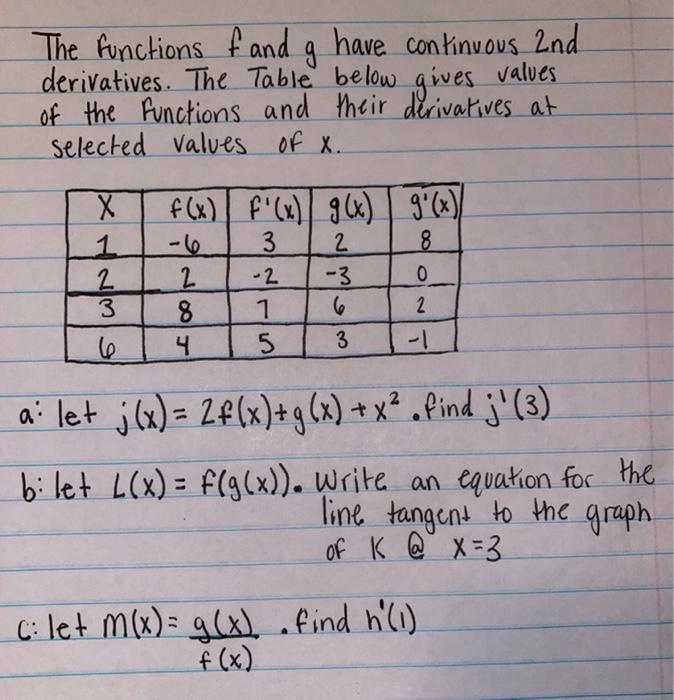 The functions f and g have continuous 2nd
derivatives. The Table below gives values
of the functions and their derivatives at
selected values of x.
X f(x) f'(x) g(x) g'(x)
1 -6 3 2 8
2 2 -2 -3 0
3 8 7 6 2
6 4 5 3 -1
a: let j(x) = 2f(x)+g(x) + x². find j'(3)
b: let L(x) = f(g(x)). Write an equation for the
line tangent to the graph
of K @ x=3
c: let m(x) = g(x)/f(x). find h'(1)